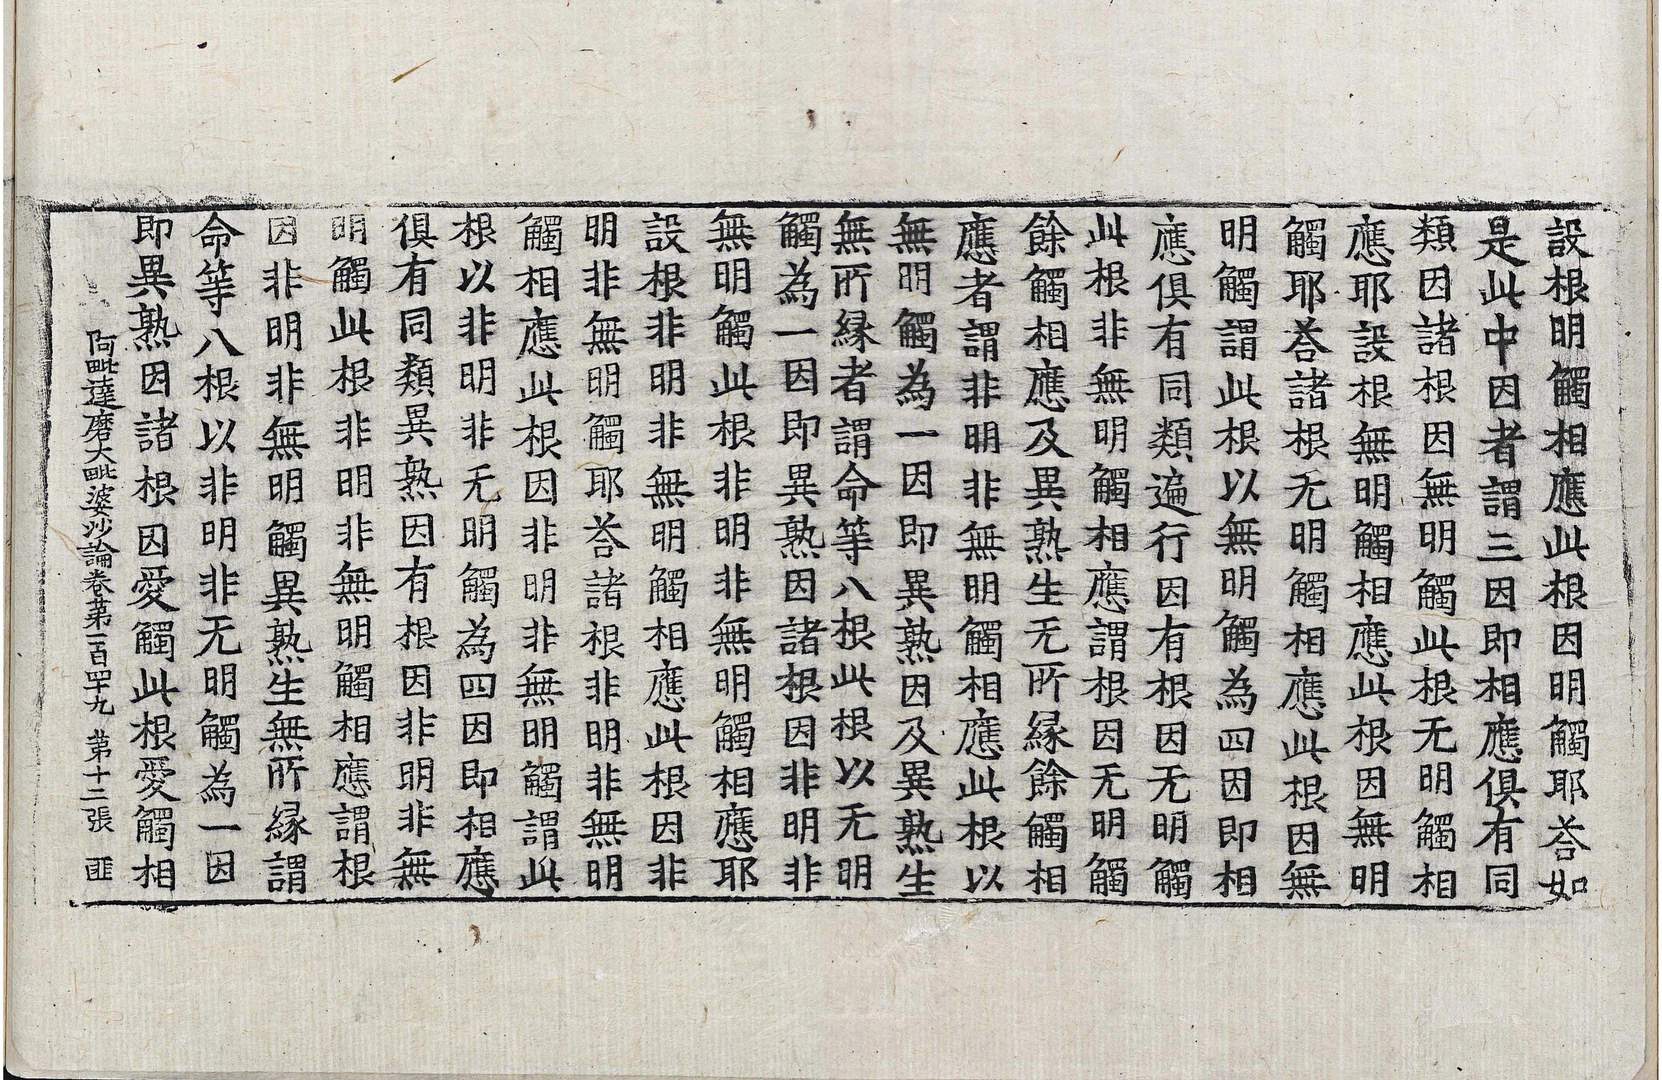 設根明觸相應此根因明觸耶荅如
是此中因者謂三因即相應俱有同
類因諸根因無明觸此根无明觸相
應耶設根無明觸相應此根因無明
觸耶荅諸根无明觸相應此根因無
明觸謂此根以無明觸為四因即相
應俱有同類遍行因有根因无明觸
此根非無明觸相應謂根因无明觸
餘觸相應及異熟生无所縁餘觸相
應者謂非明非無明觸相應此根以
無明觸為一因即異熟因及異熟生
無所縁者謂命等八根此根以无明
觸為一因即異熟因諸根因非明非
無明觸此根非明非無明觸相應耶
設根非明非無明觸相應此根因非
明非無明觸耶荅諸根非明非無明
觸相應此根因非明非無明觸謂此
根以非明非无明觸為四因即相應
俱有同類異熟因有根因非明非無
明觸此根非明非無明觸相應謂根
因非明非無明觸異熟生無所縁謂
命等八根以非明非无明觸為一因
即異熟因諸根因愛觸此根愛觸相
阿毗達磨大毗婆沙論卷第一百四十九 第十二張 匪